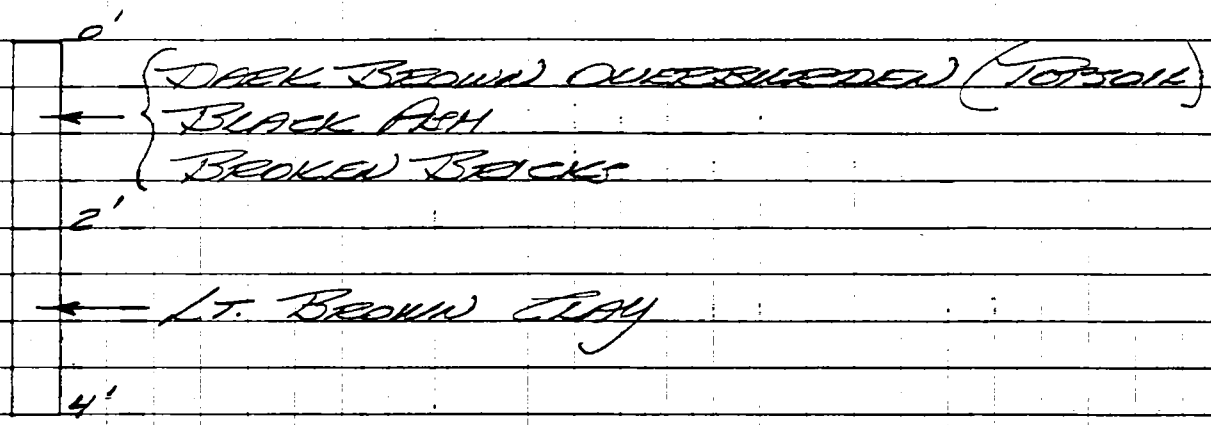 0'
DARK BROWN OVERBURDEN (TOPSOIL)
BLACK ASH
BROKEN BRICKS
2'
LT. BROWN CLAY
4'